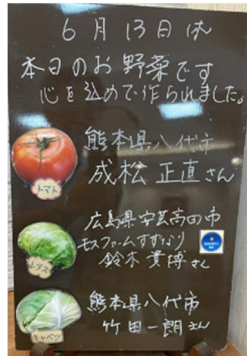 6月13日(木)
本日のお野菜です
心を込めて作られました。
熊本県八代市
成松 正直さん
トマト
広島県安芸高田市
モスファームすずなり
鈴木 貴博さん
レタス
熊本県八代市
竹田一朗さん
キャベツ